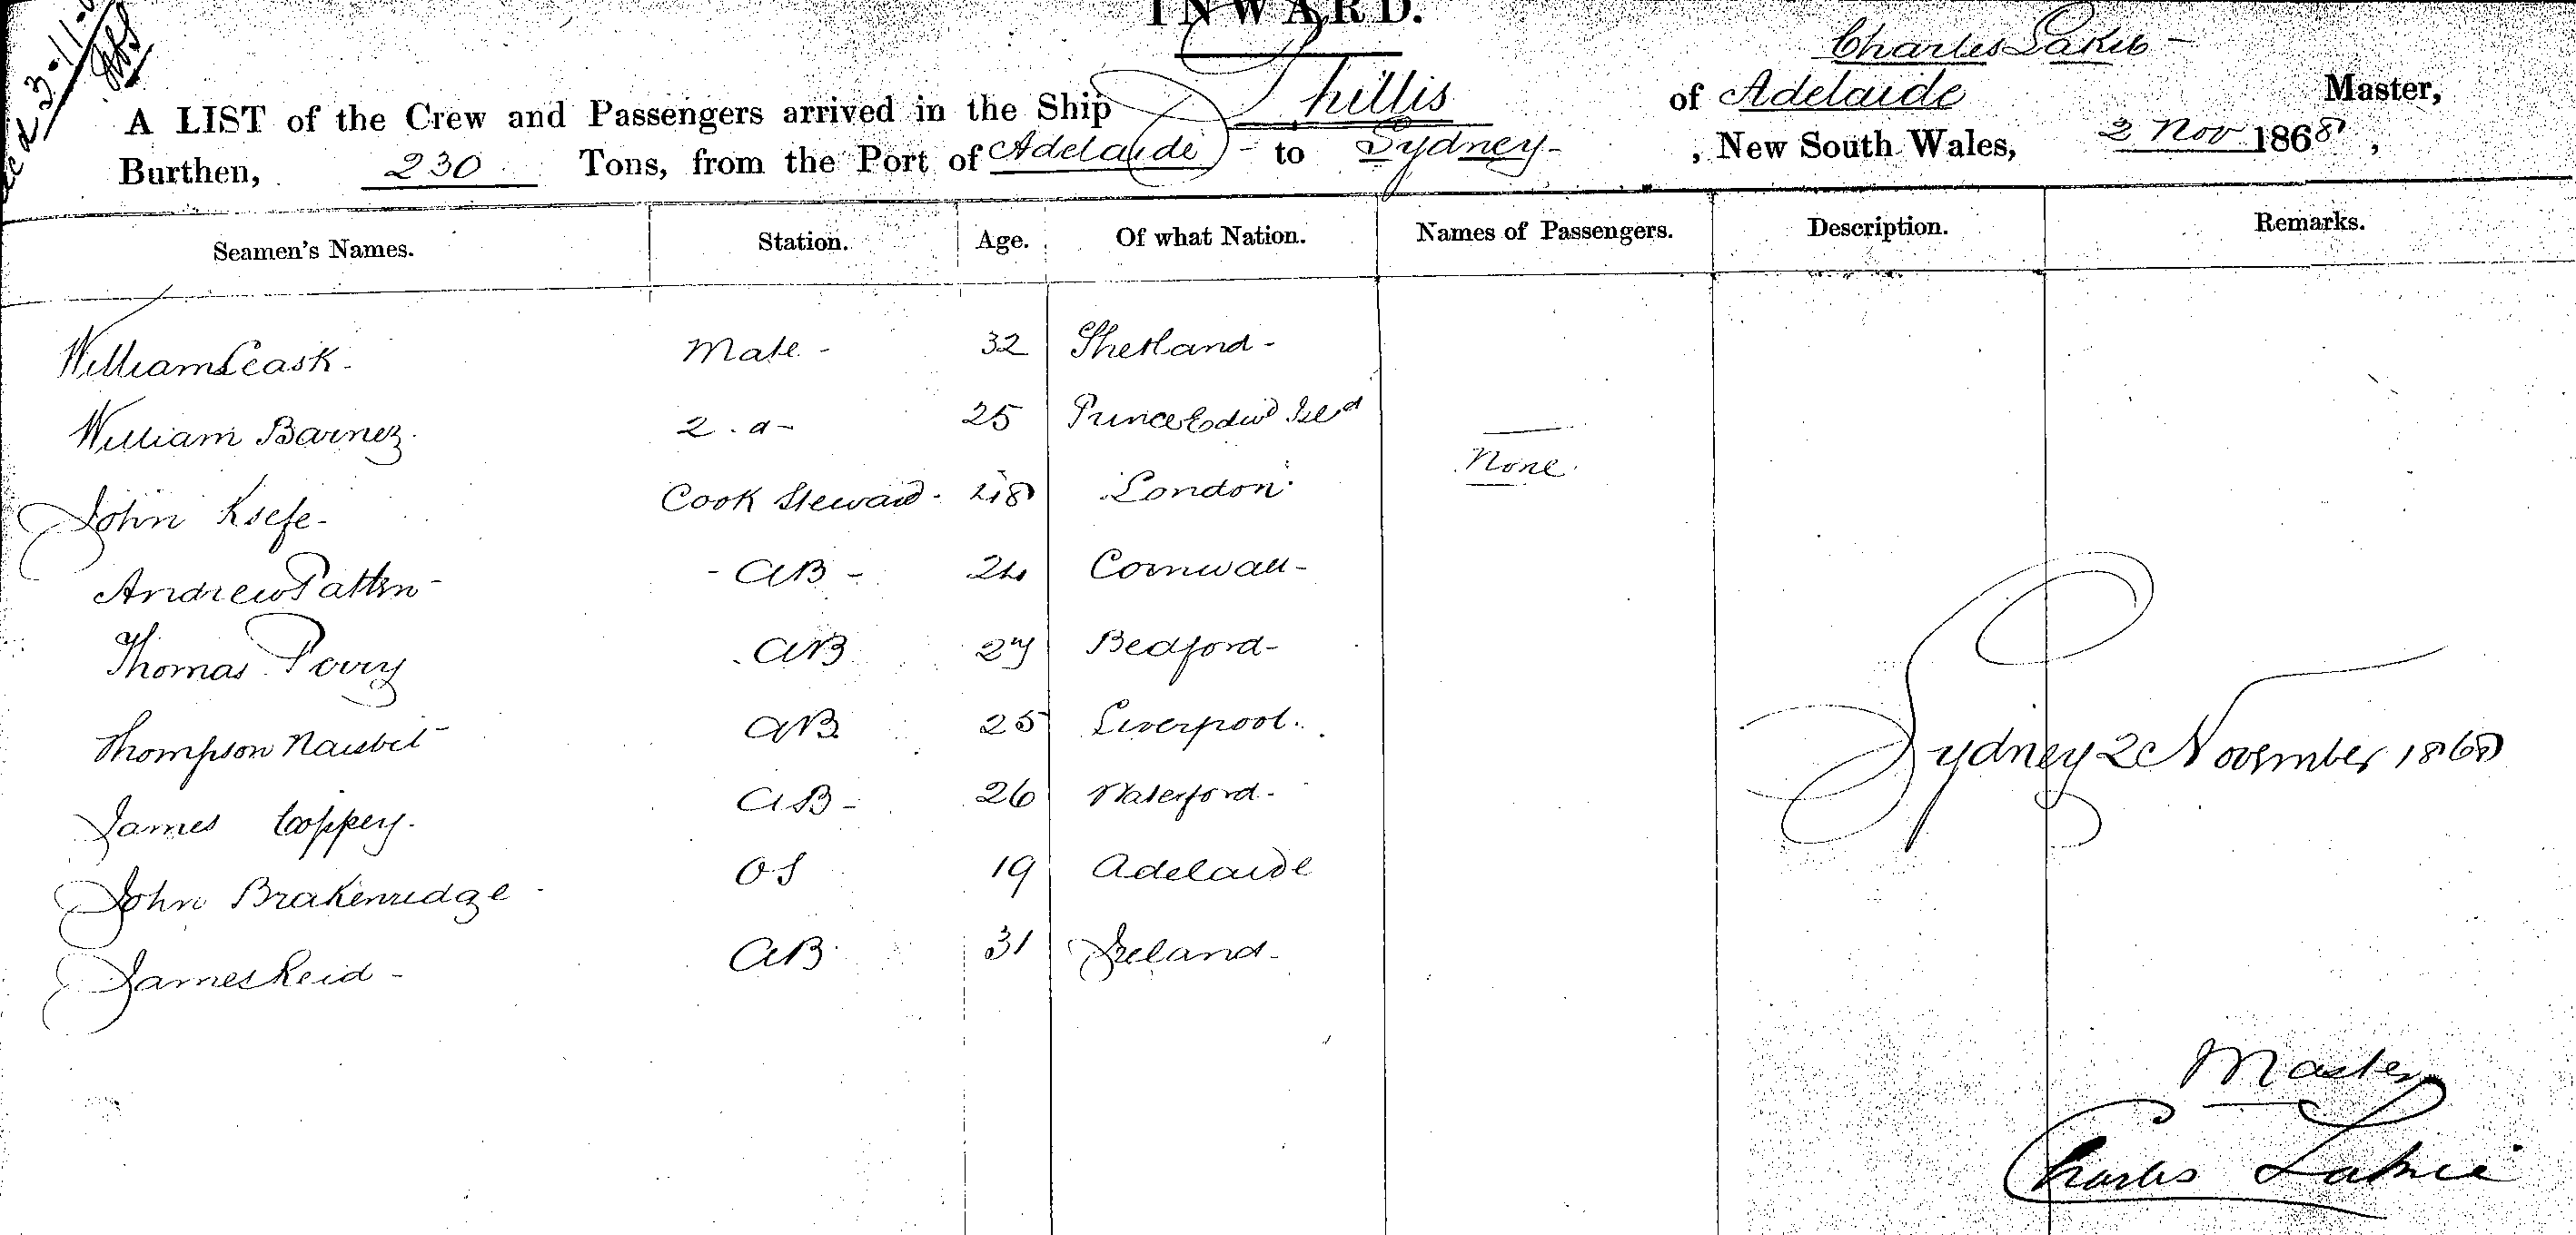 INWARD.
Charles
A LIST of the Crew and Passengers arrived in the Ship Phillis of Adelaide Master,
Burthen, 230 Tons, from the Port of Adelaide to Sydney , New South Wales, 2 Nov 1868,
Seamen's Names. Station. Age. Of what Nation. Names of Passengers. Description. Remarks.
William Leask Mate 32 Shetland
William Barnez 2. d 25 Prince Edwd Isld
None
John Keefe Cook Steward 48 London
Andrew Patten AB 24 Cornwall
Thomas Perry AB 27 Bedford
Thompson Naisbit AB 25 Liverpool
Sydney 2 November 1868
James Coppey AB 26 Waterford
John Brakenridge OS 19 Adelaide
James Reid AB 31 Ireland
Master
Charles